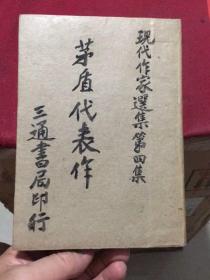 現代作家選集第四集
茅盾代表作
三通書局印行